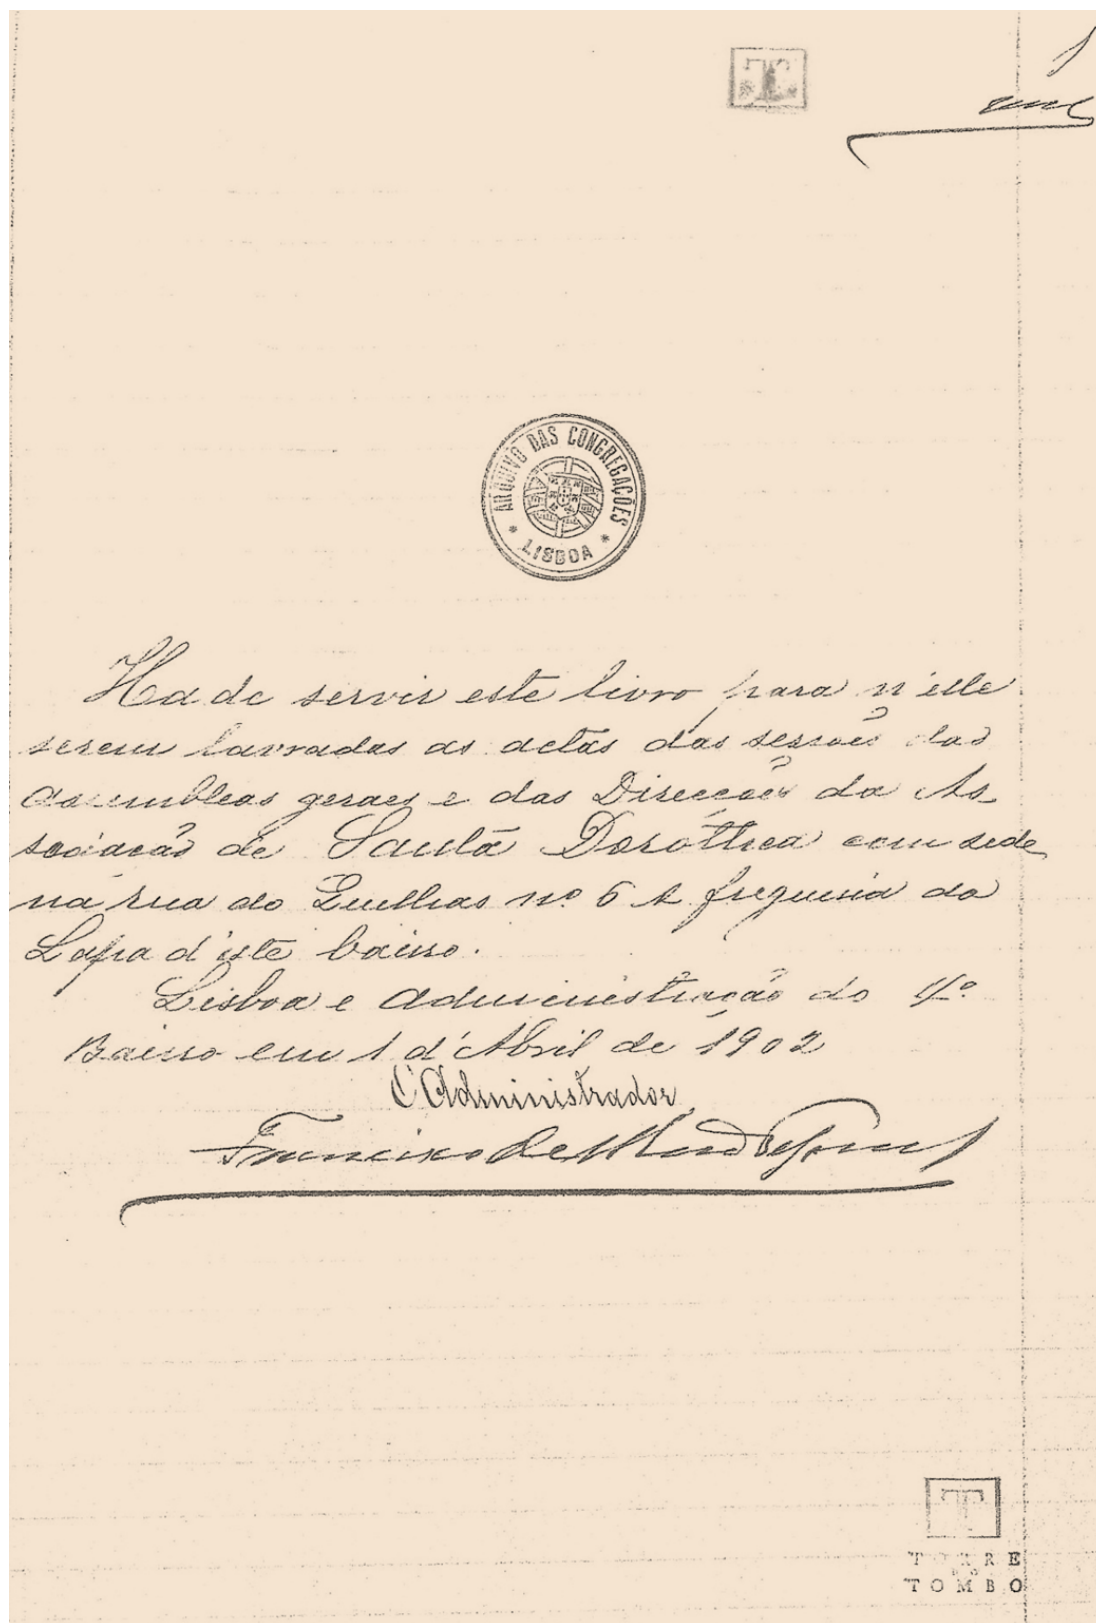 1
ARQUIVO DAS CONGREGAÇÕES
* LISBOA *
Ha de servir este livro para n'elle
serem lavradas as actas das sessões das
Assembleas geraes e das Direcções da As-
sociação de Santa Dorothea com sede
na rua do Quelhas nº 6 A freguesia da
Lapa d'este bairro.
Lisboa e Administração do 4º
Bairro em 1 d'Abril de 1902
O Administrador
Francisco de
TORRE
DO
TOMBO